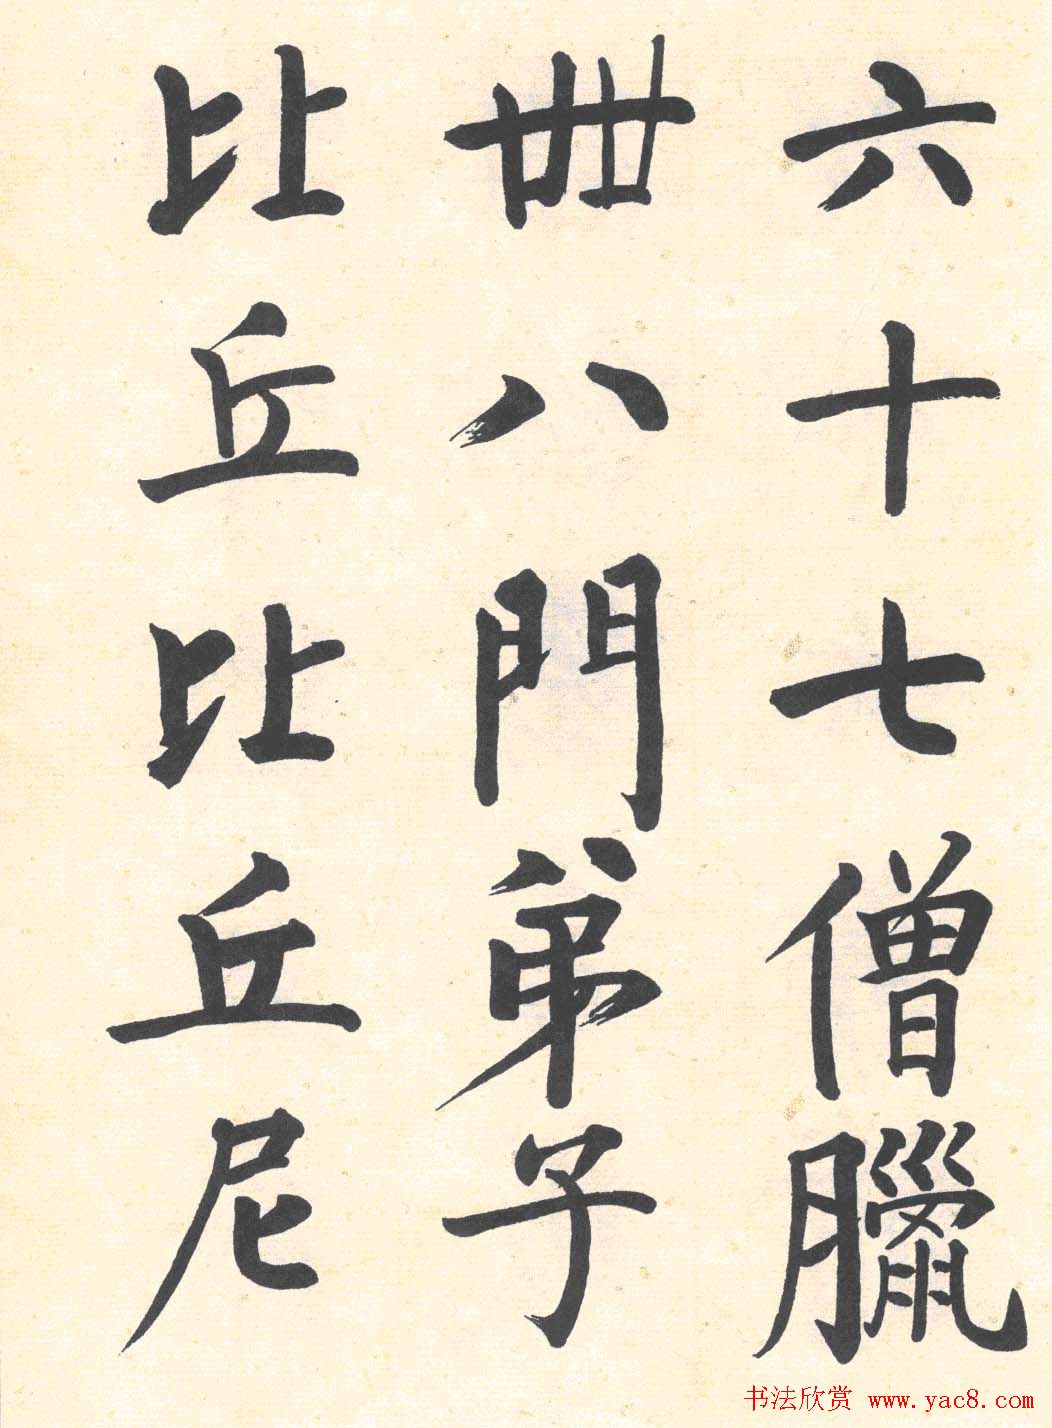 六十七僧臘
卌八門弟子
比丘比丘尼
书法欣赏 www.yac8.com